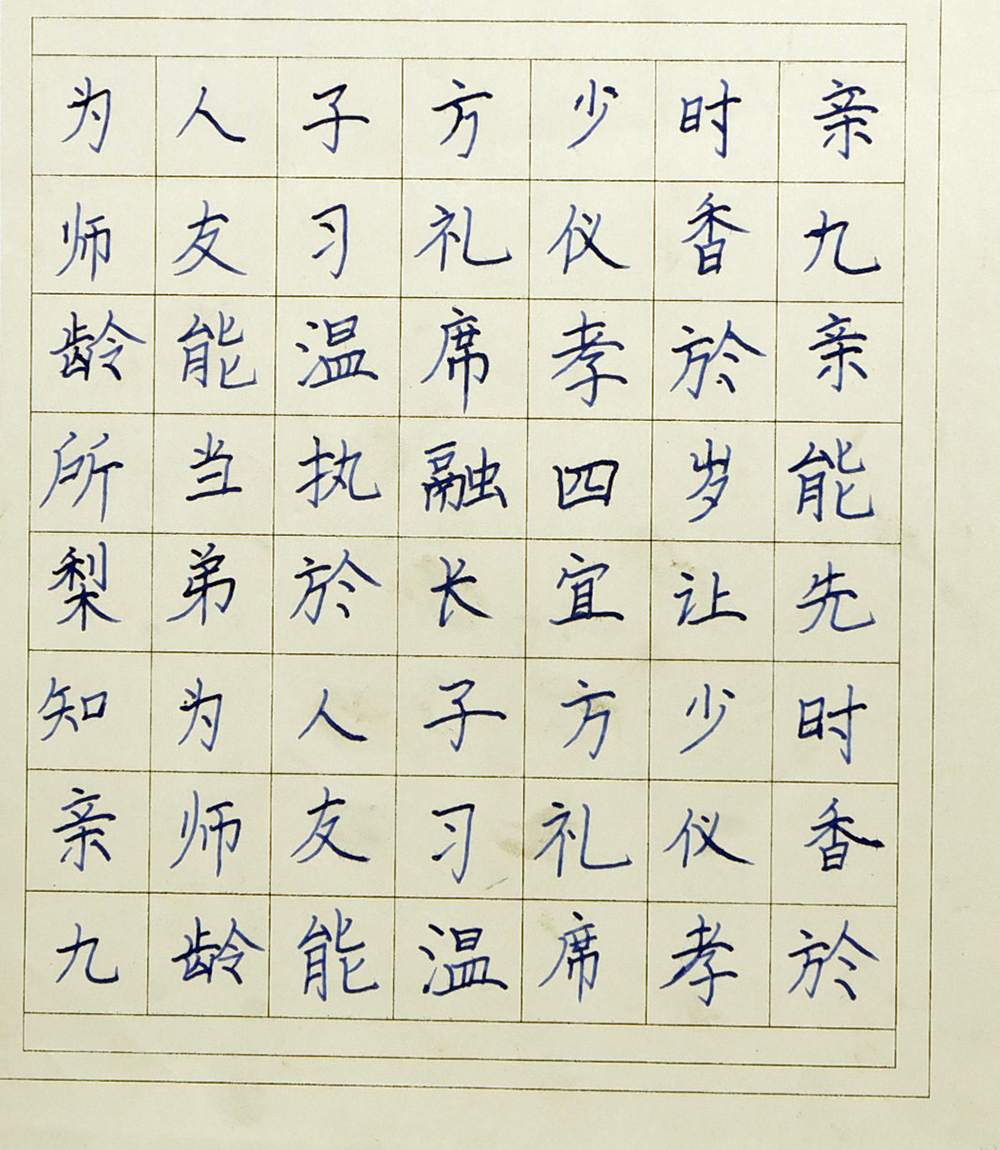 为人子方少时亲
师友习礼仪香九
龄能温席孝於亲
所当执融四岁能
梨弟於长宜让先
知为人子方少时
亲师友习礼仪香
九龄能温席孝於